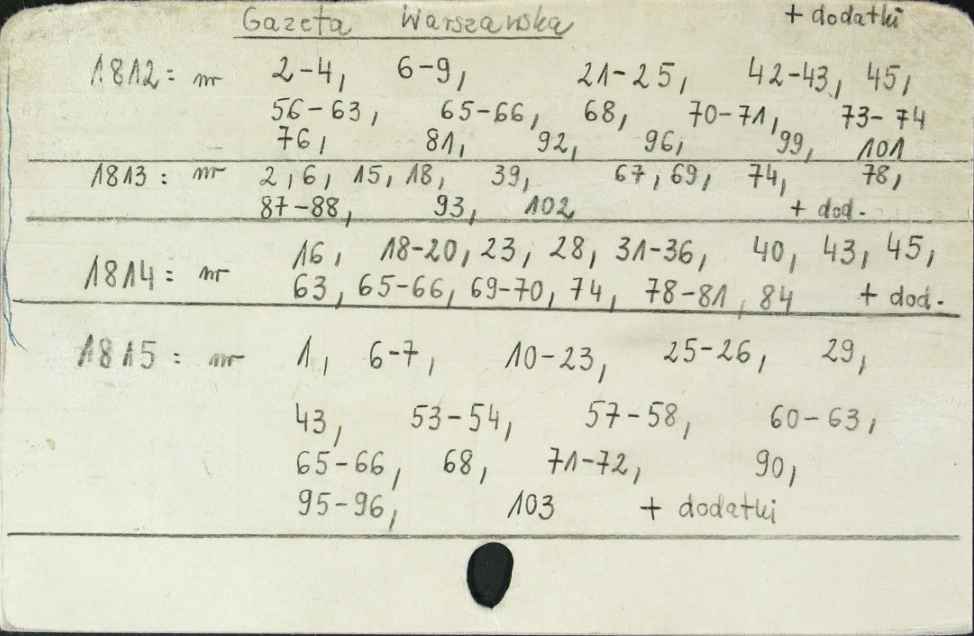 Gazeta Warszawska + dodatki
1812 = nr 2-4, 6-9, 21-25, 42-43, 45,
56-63, 65-66, 68, 70-71, 73-74
76, 81, 92, 96, 99, 101
1813 : nr 2, 6, 15, 18, 39, 67, 69, 74, 78,
87-88, 93, 102 + dod.
16, 18-20, 23, 28, 31-36, 40, 43, 45,
1814 = nr 63, 65-66, 69-70, 74, 78-81, 84 + dod.
1815 : nr 1, 6-7, 10-23, 25-26, 29,
43, 53-54, 57-58, 60-63,
65-66, 68, 71-72, 90,
95-96, 103 + dodatki